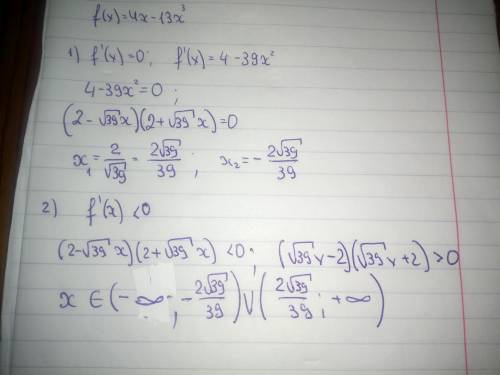 f(x)=4x-13x³
1) f'(x)=0; f'(x)=4-39x²
4-39x²=0;
(2-√39x)(2+√39x)=0
x₁=2/√39=2√39/39; x₂=-2√39/39
2) f'(x)<0
(2-√39x)(2+√39x)<0; (√39x-2)(√39x+2)>0
x∈(-∞;-2√39/39)∪(2√39/39;+∞)